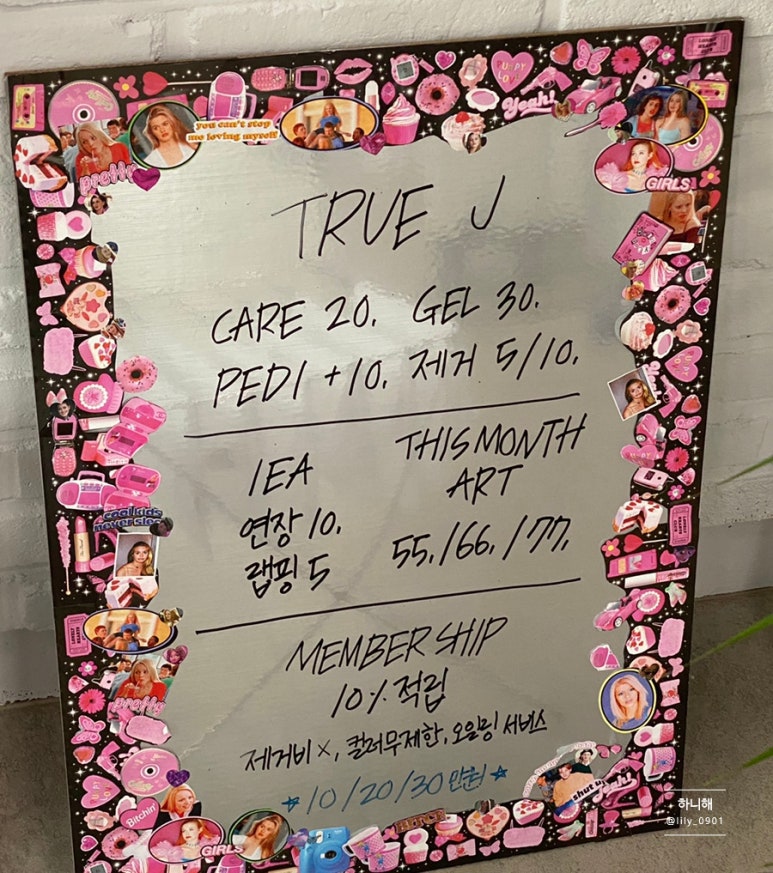 you can't stop
me loving myself
Yeah!
pretty
GIRLS
TRUE J
CARE 20. GEL 30.
PEDI +10. 제거 5/10.
1EA
연장 10.
랩핑 5
THIS MONTH
ART
55./66./77.
cool kids
never sleep
MEMBERSHIP
10% 적립
제거비 ×, 컬러무제한, 오일링 서비스
☆ 10/20/30 만원 ☆
pretty
Bitchin'
GIRLS
shut up
Yeah!
하니해
@lily_0901